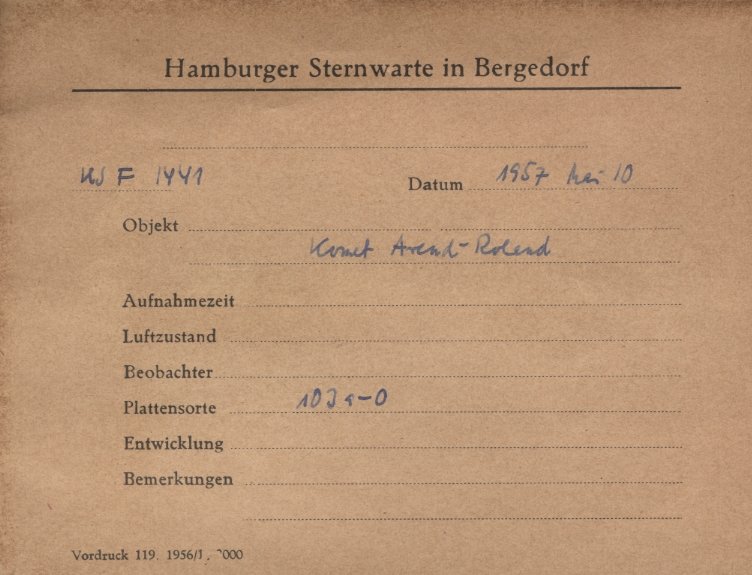 Hamburger Sternwarte in Bergedorf
F 1441
Datum 1957 Mai 10
Objekt
Komet Arend-Roland
Aufnahmezeit
Luftzustand
Beobachter
Plattensorte 103a-O
Entwicklung
Bemerkungen
Vordruck 119. 1956/1.